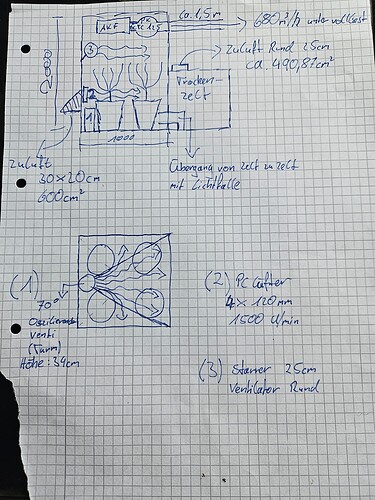 ca. 1,5m
680 m³/h unter volllast
AKF
2000
3
Zuluft Rund 25cm
ca. 490,87cm²
Trocken-
zelt
2
1
1000
Zuluft
30x20cm
600cm²
Übergang von zelt zu zelt
mit Lichtfalle
(1)
70°
Oszilierender
Venti
(Turm)
Höhe: 54cm
(2) PC Lüfter
4x 120mm
1500 U/min
(3) Starrer 25cm
Ventilator Rund